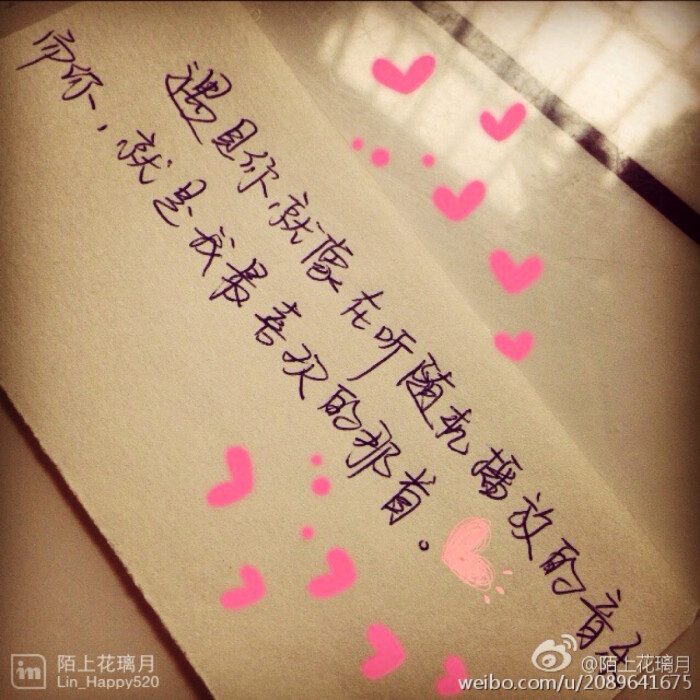 遇见你，就像在听随机播放的音
而你，就是我最喜欢的那首。
陌上花璃月
Lin_Happy520
@陌上花璃月
weibo.com/u/2089641675